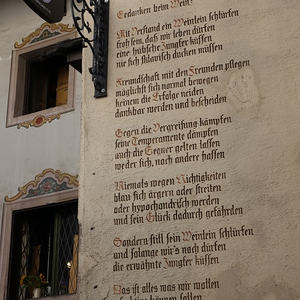 Gedanken beim Wein!
Mit Verstand ein Weinlein schlürfen
froh sein, daß wir leben dürfen
eine hübsche Jungfer küssen
nie sich sklavisch ducken müssen
Freundschaft mit den Freunden pflegen
möglichst sich normal bewegen
keinem die Erfolge neiden
dankbar werden und bescheiden
Gegen die Vergreisung kämpfen
seine Temperamente dämpfen
auch die Gegner gelten lassen
weder sich, noch andre hassen
Niemals wegen Nichtigkeiten
blau sich ärgern oder streiten
oder hypochondrisch werden
und sein Glück dadurch gefährden
Sondern still sein Weinlein schlürfen
und solange wir's noch dürfen
die erwähnte Jungfer küssen
Das ist alles was wir wollen
können sollen